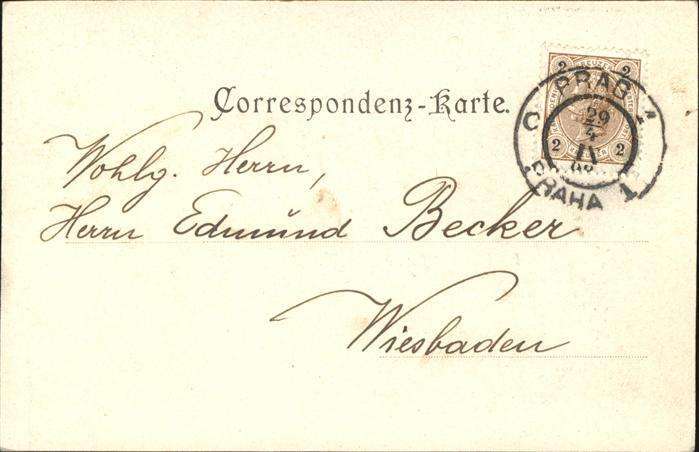 Correspondenz-Karte.
2 2
2 2
PRAG
29
4
PRAHA 1
Wohlg. Herrn,
Herrn Edmund Becker
Wiesbaden